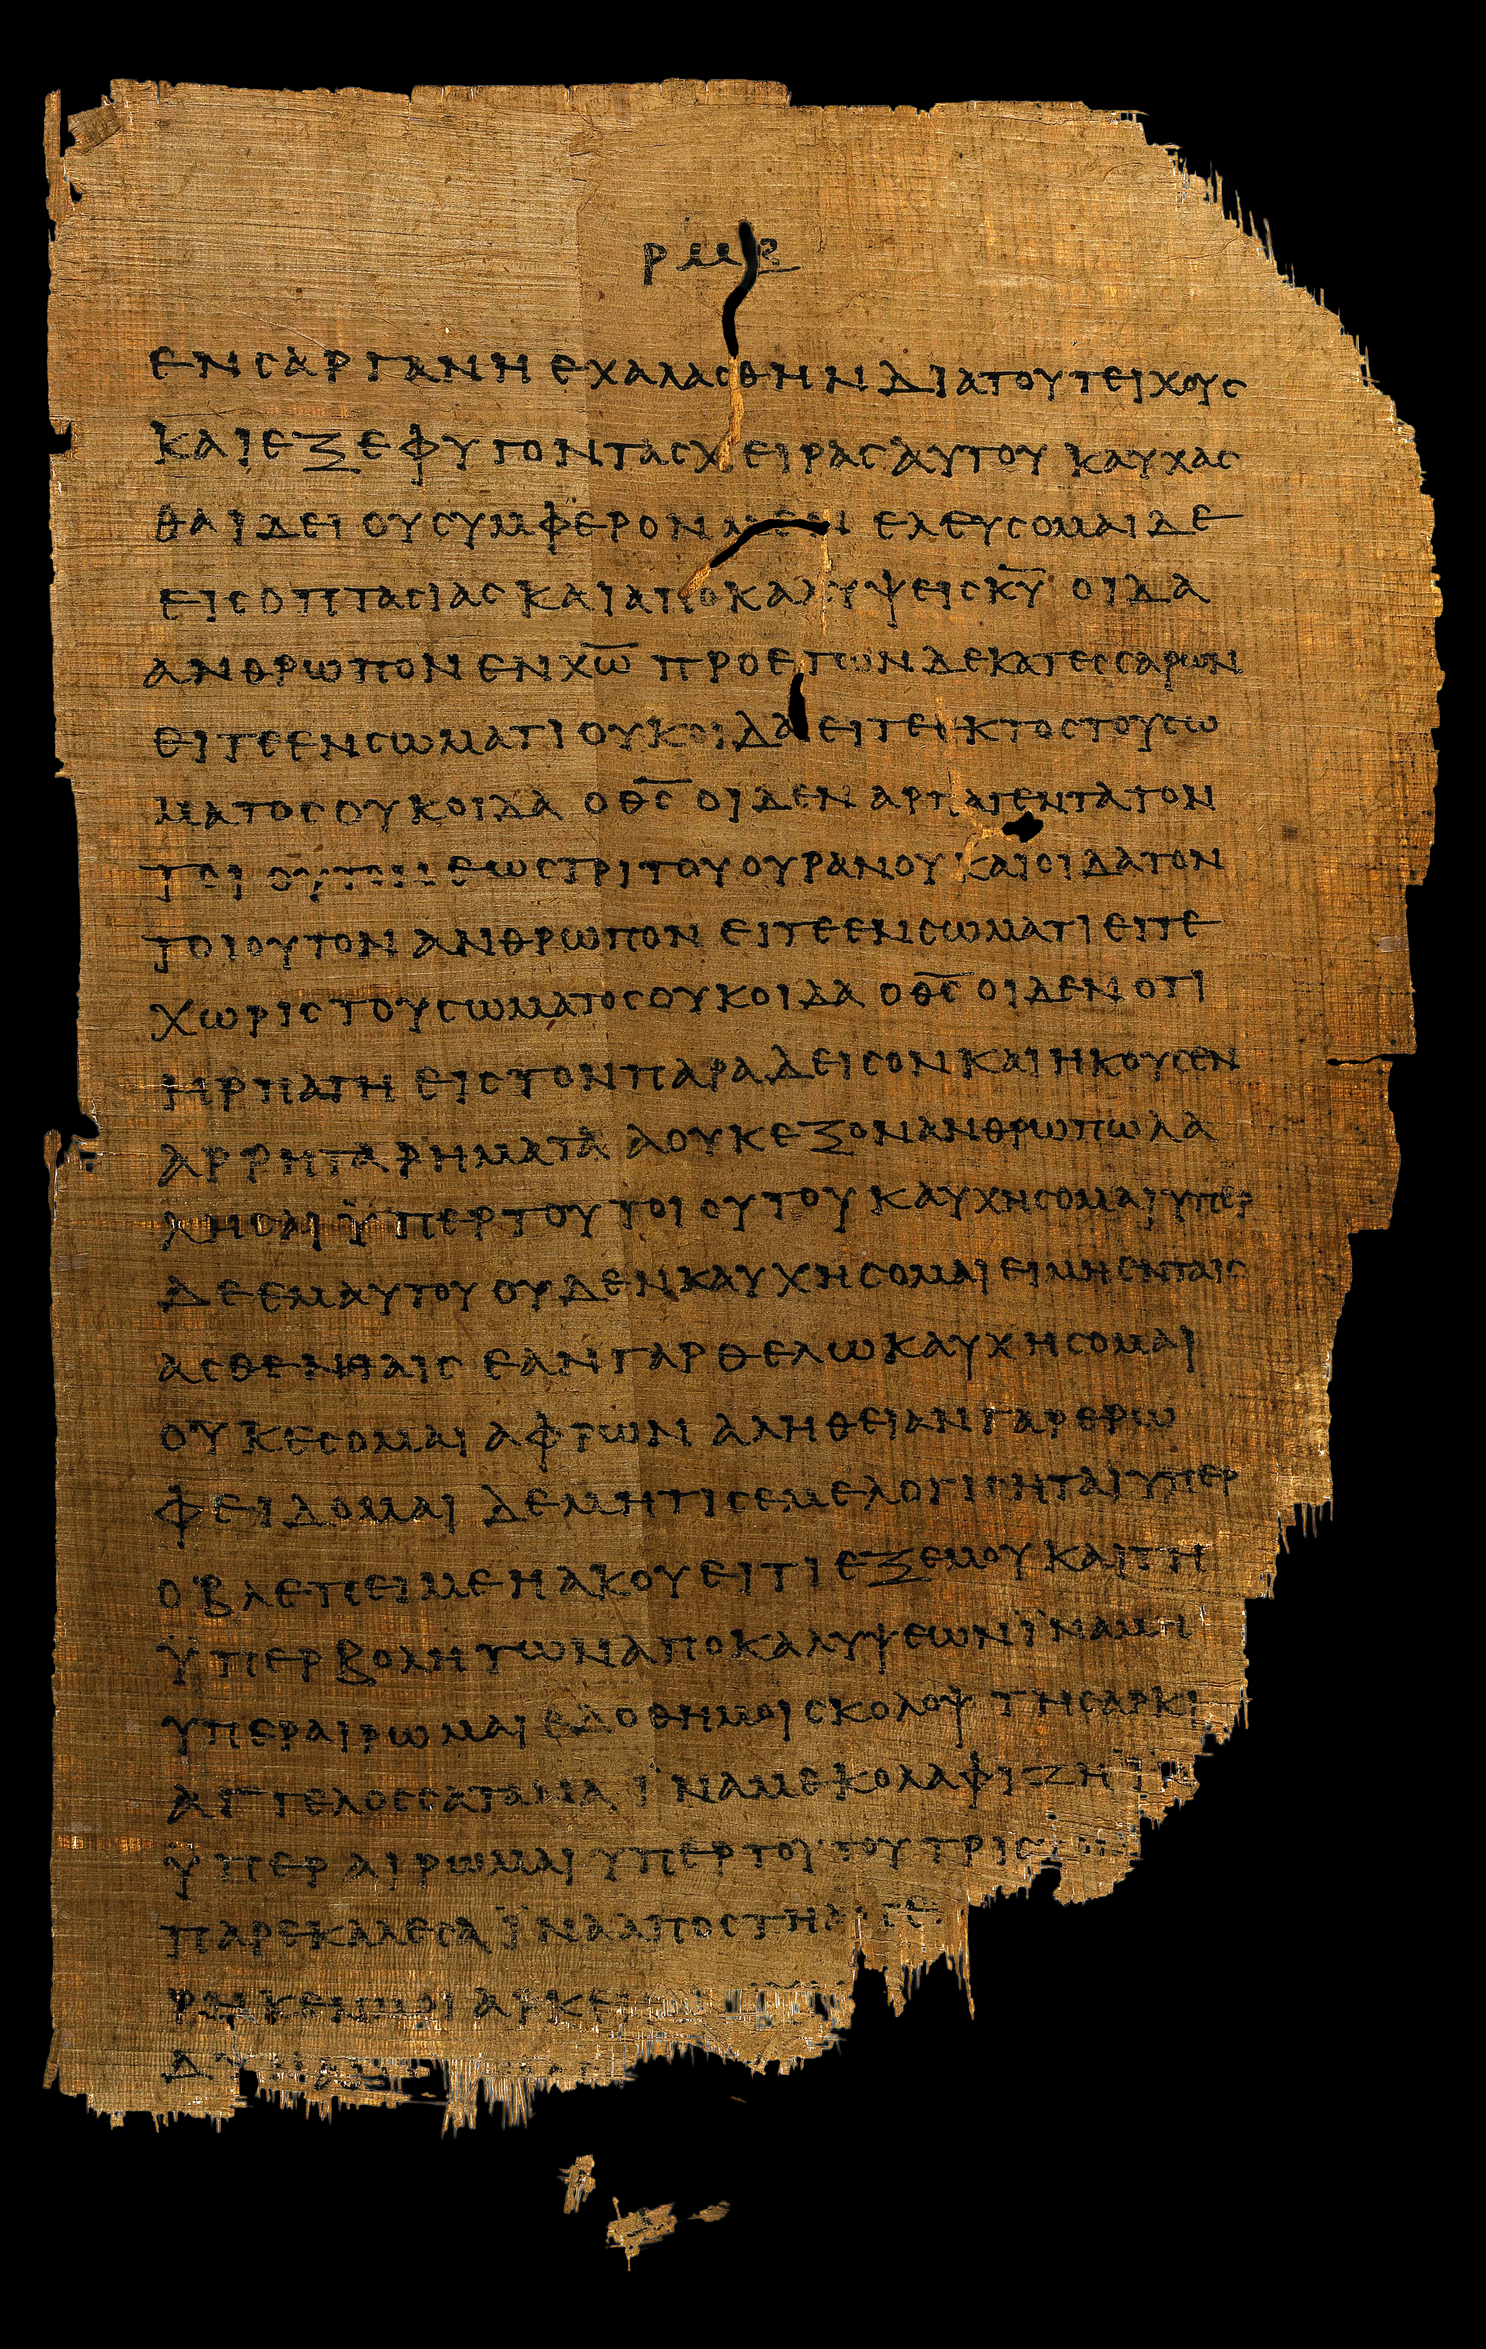 ρμβ
ενσαργανη εχαλασθην διατουτειχους
καιεξεφυγοντασχειρασαυτου καυχασ
θαιδει ουσυμφερον μεν ελευσομαιδε
εισοπτασιασκαιαποκαλυψεισκ̅υ̅ οιδα
ανθρωπονενχ̅ω̅ προετωνδεκατεσσαρων
ειτεενσωματιουκοιδαειτεεκτοςτουσω
ματοςουκοιδα οθ̅ς̅ οιδεν αρπαγεντατον
τοιουτονεωςτριτουουρανουκαιοιδατον
τοιουτον ανθρωπον ειτεενσωματιειτε
χωριςτουσωματοςουκοιδα οθ̅ς̅ οιδενοτι
ηρπαγη ειςτονπαραδεισονκαιηκουσεν
αρρηταρηματα αουκεξονανθρωπωλα
λησαιϋπερτουτοιουτου καυχησομαιυπερ
δεεμαυτουουδενκαυχησομαιειμηενταις
ασθενηαις εανγαρθελωκαυχησομαι
ουκεσομαι αφρων αληθειανγαρερω
φειδομαι δεμητιςεμελογισηταιυπερ
οβλεπειμεηακουειτιεξεμου καιτη
ϋπερβολητωναποκαλυψεωνϊναμη
υπεραιρωμαιεδοθημοισκολοψ τησαρκι
αγγελοσσατανα ϊναμεκολαφιζηϊν
ϋπεραιρωμαιυπερτουτουτρις
παρεκαλεσαϊνααποστη
ρηκενμοιαρκε
δυ